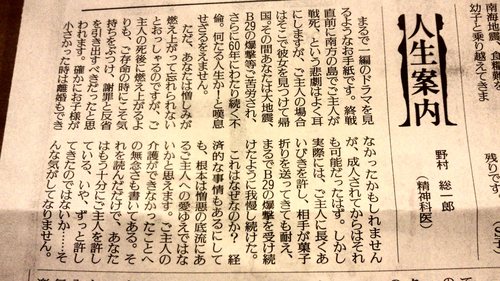 南海地震、食糧難を
幼子と乗り越えてきま
残りで
人生案内
野村 総一郎
(精神科医)
まるで一編のドラマを見
るようなお手紙です。終戦
直前に南方の島でご主人が
戦死、という悲劇はよく耳
にしますが、ご主人の場合
はそこで彼女を見つけて帰
国。その間あなたは大地震、
B29の爆撃等ご苦労され、
さらに60年にわたり続く不
倫。何たる人生かー!と嘆息
せざるをえません。
ただ、あなたは憎しみが
燃え上がって忘れられない
とおっしゃるのですが、ご
主人の死後に燃え上がるよ
りも、ご存命の時にこそ気
持ちをぶつけ、謝罪と反省
を引き出すべきだったと思
われます。確かにお子様が
小さかった時は離婚もでき
なかったかもしれません
が、成人されてからはそれ
も可能だったはず。しかし
実際には、ご主人に長くあ
いびきを許し、相手が菓子
折りを送ってきても耐え、
まるでB29の爆撃を受け続
けたように我慢し続けた。
これはなぜなのか? 経
済的な事情もあるにして
も、根本は憎悪の底流にあ
るご主人への愛ゆえではな
いかと思えます。ご主人の
介護ができなかったことへ
の無念さも書いてある。そ
れを読んだだけで、あなた
はもう十分にご主人を許し
ている、いや、ずっと許し
てきたのではないか……そ
んな気がしてなりません。